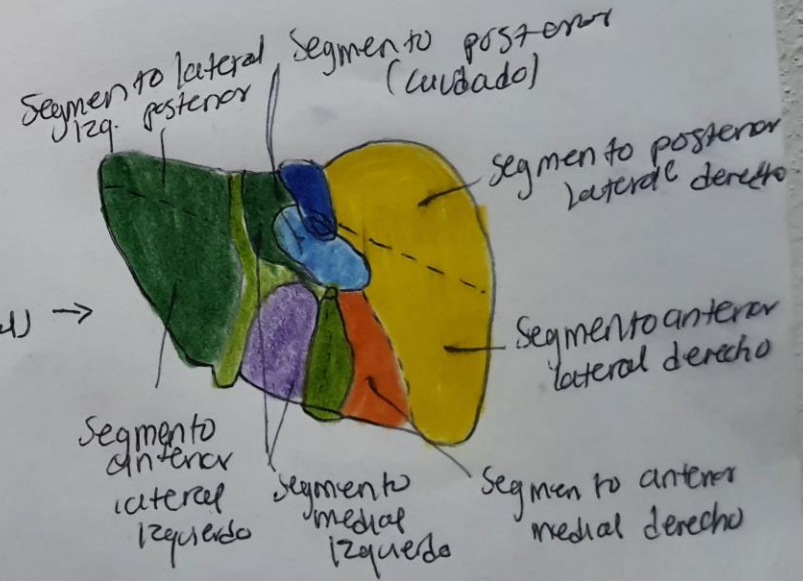 Segmento lateral
izq. posterior
Segmento posterior
(cuidado)
Segmento posterior
lateral derecho
→
Segmento anterior
lateral derecho
Segmento
anterior
lateral
Izquierdo
Segmento
medial
Izquierdo
Segmento anterior
medial derecho